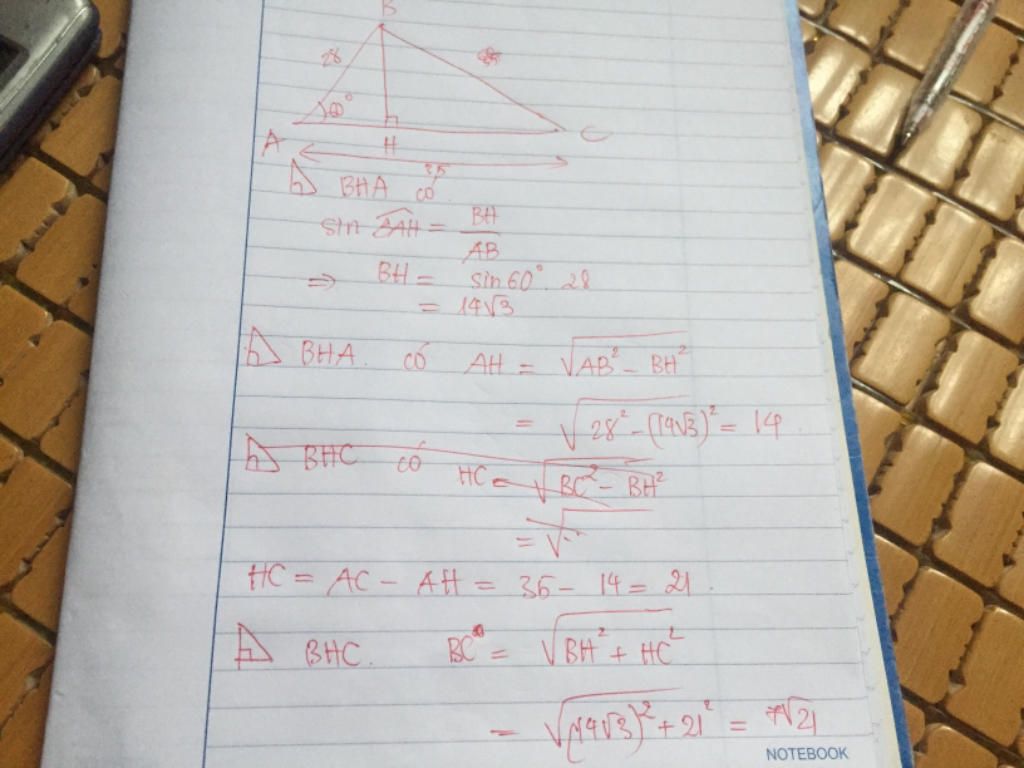 B
28
60°
A
H
C
35
BHA có
sin BAH = BH / AB
⇒ BH = sin 60° . 28
= 14√3
BHA. có AH = √(AB² - BH²)
= √(28² - (14√3)²) = 14
BHC có
HC = √(BC² - BH²)
= √..
HC = AC - AH = 35 - 14 = 21.
BHC. BC = √(BH² + HC²)
= √((14√3)² + 21²) = 7√21
NOTEBOOK